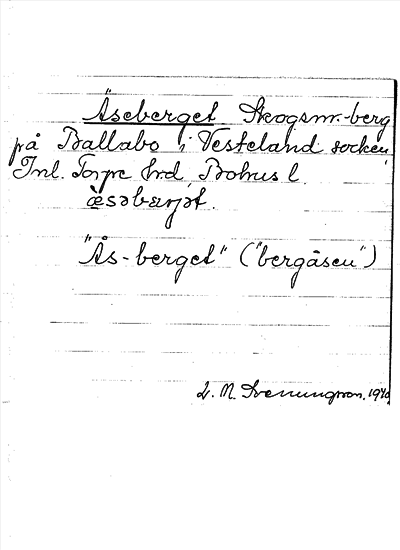 Äseberget Skogsmr.-berg
på Ballabo i Vesteland socken
Inl. Torpe hrd, Bohus l.
æ̀səbærjət.
"Ås-berget" ("bergåsen")
L. M. Svenungsson. 1940